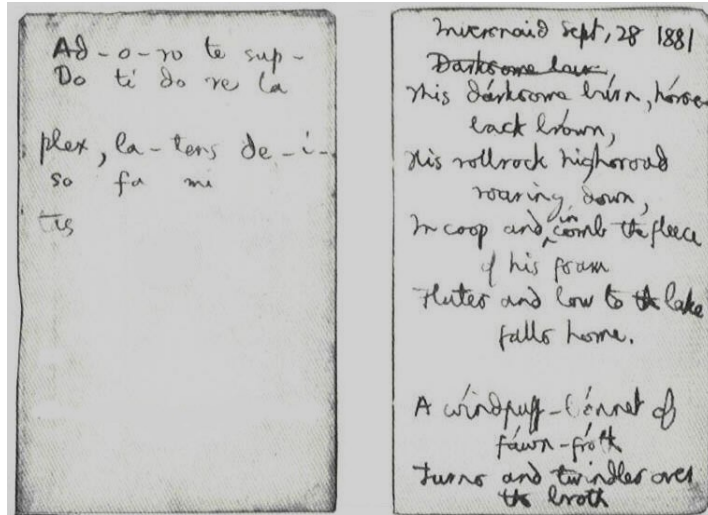 Ad-o-ro te sup-
Do ti do re la
plex, la-tens de-i-
so fa mi
tas
Inversnaid Sept, 28 1881
Darksome burn,
This dárksome búrn, hórse
back brówn,
His rollrock highroad
roaring down,
In coop and in comb the fleece
of his foam
Flutes and low to the lake
falls home.
A wíndpuff-bónnet of
fáwn-fróth
Turns and twindles over
the broth